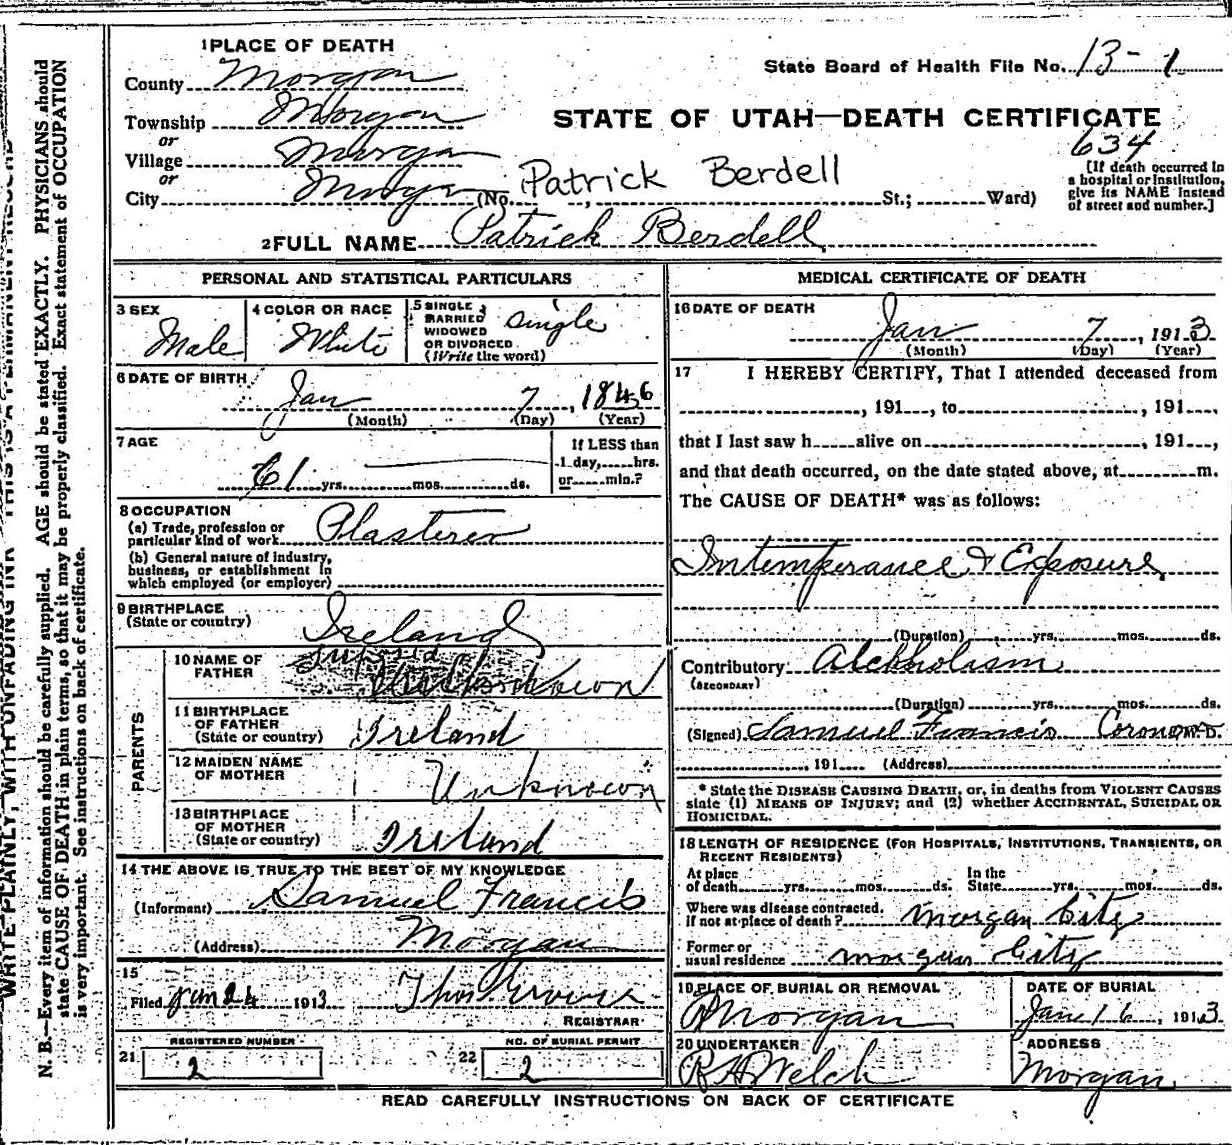 1 PLACE OF DEATH
County Morgan
Township Morgan
or
Village Morgan
or
City Morgan (No. Patrick Berdell St.; Ward)
State Board of Health File No. 13-1
STATE OF UTAH—DEATH CERTIFICATE
634
[If death occurred in
a hospital or institution,
give its NAME instead
of street and number.]
2 FULL NAME Patrick Berdell
PERSONAL AND STATISTICAL PARTICULARS
3 SEX
Male
4 COLOR OR RACE
White
5 SINGLE
MARRIED
WIDOWED
OR DIVORCED
(Write the word)
single
6 DATE OF BIRTH
Jan 7, 1846
(Month) (Day) (Year)
7 AGE
61 yrs. mos. ds.
If LESS than
1 day, hrs.
or min.?
8 OCCUPATION
(a) Trade, profession or
particular kind of work Plasterer
(b) General nature of industry,
business, or establishment in
which employed (or employer)
9 BIRTHPLACE
(State or country) Ireland
PARENTS
10 NAME OF
FATHER
Unknown
11 BIRTHPLACE
OF FATHER
(State or country) Ireland
12 MAIDEN NAME
OF MOTHER Unknown
13 BIRTHPLACE
OF MOTHER
(State or country) Ireland
14 THE ABOVE IS TRUE TO THE BEST OF MY KNOWLEDGE
(Informant) Samuel Francis
(Address) Morgan
15
Filed Jan 24 1913 Thos
REGISTRAR
21 REGISTERED NUMBER
2
22 NO. OF BURIAL PERMIT
2
MEDICAL CERTIFICATE OF DEATH
16 DATE OF DEATH
Jan 7, 1913
(Month) (Day) (Year)
17 I HEREBY CERTIFY, That I attended deceased from
, 191 , to , 191 ,
that I last saw h alive on , 191 ,
and that death occurred, on the date stated above, at m.
The CAUSE OF DEATH* was as follows:
Intemperance & Exposure
(Duration) yrs. mos. ds.
Contributory Alckholism
(SECONDARY)
(Duration) yrs. mos. ds.
(Signed) Samuel Francis Coroner M.D.
, 191 (Address)
* State the DISEASE CAUSING DEATH, or, in deaths from VIOLENT CAUSES
state (1) MEANS OF INJURY; and (2) whether ACCIDENTAL, SUICIDAL OR
HOMICIDAL.
18 LENGTH OF RESIDENCE (FOR HOSPITALS, INSTITUTIONS, TRANSIENTS, OR
RECENT RESIDENTS)
At place
of death yrs. mos. ds.
In the
State yrs. mos. ds.
Where was disease contracted.
If not at place of death? Morgan City
Former or
usual residence Morgan City
19 PLACE OF BURIAL OR REMOVAL
Morgan
DATE OF BURIAL
Jan 16, 1913
20 UNDERTAKER
R A Welch
ADDRESS
Morgan
READ CAREFULLY INSTRUCTIONS ON BACK OF CERTIFICATE
WRITE PLAINLY, WITH UNFADING INK—THIS IS A PERMANENT RECORD
N. B.—Every item of information should be carefully supplied. AGE should be stated EXACTLY. PHYSICIANS should
state CAUSE OF DEATH in plain terms, so that it may be properly classified. Exact statement of OCCUPATION
is very important. See instructions on back of certificate.